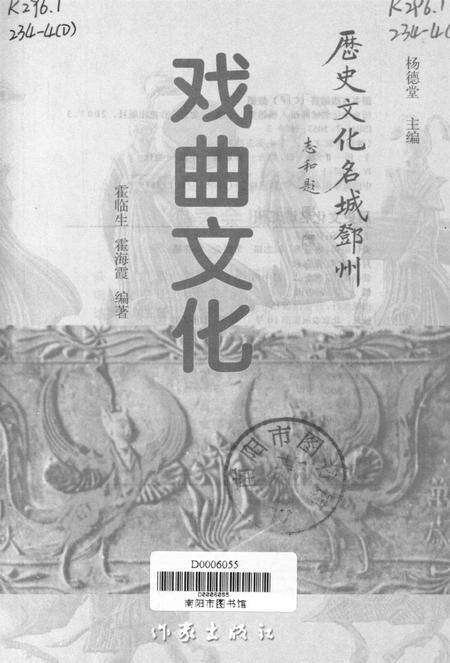 K296.1
234-4(D)
K296.1
杨德堂 主编
歷史文化名城鄧州
志和題
戏曲文化
霍临生 霍海霞 编著
阳市图
D0006055
D0006055
南阳市图书馆
作家出版社